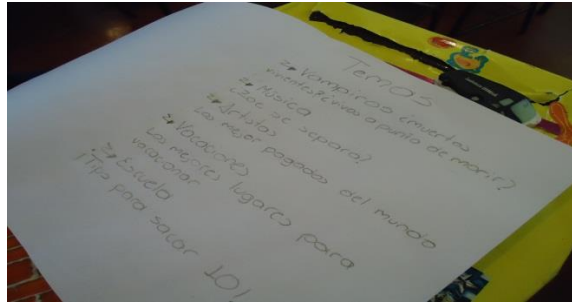 Temas
Vampiros ¿muertos
vivientes? ¿vivos a punto de morir?
Música
¿Joe se separa?
Artistas
Los mejor pagados del mundo
Vacaciones
Los mejores lugares para
vacacionar
Escuela
¡Tips para sacar 10!